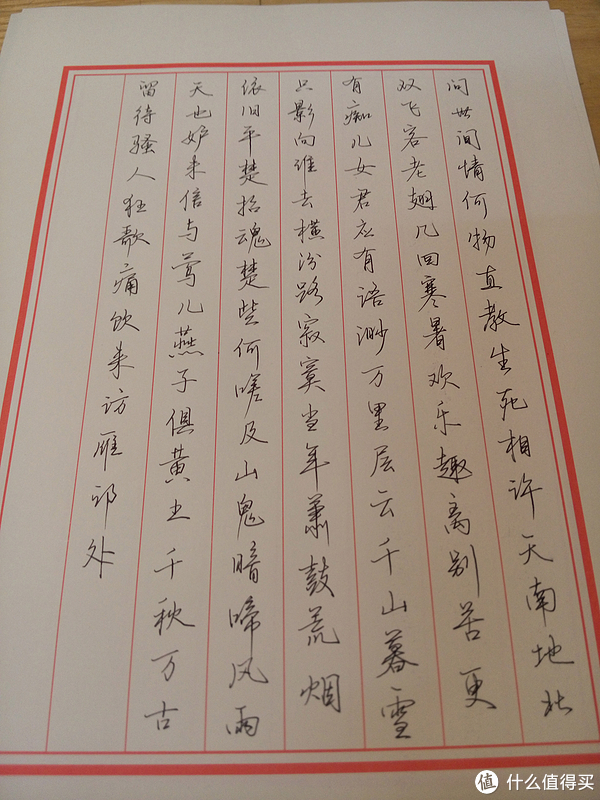 问世间情何物直教生死相许天南地北
双飞客老翅几回寒暑欢乐趣离别苦更
有痴儿女君应有语渺万里层云千山暮雪
只影向谁去横汾路寂寞当年萧鼓荒烟
依旧平楚招魂楚些何嗟及山鬼暗啼风雨
天也妒未信与莺儿燕子俱黄土千秋万古
留待骚人狂歌痛饮来访雁邱处
值 什么值得买